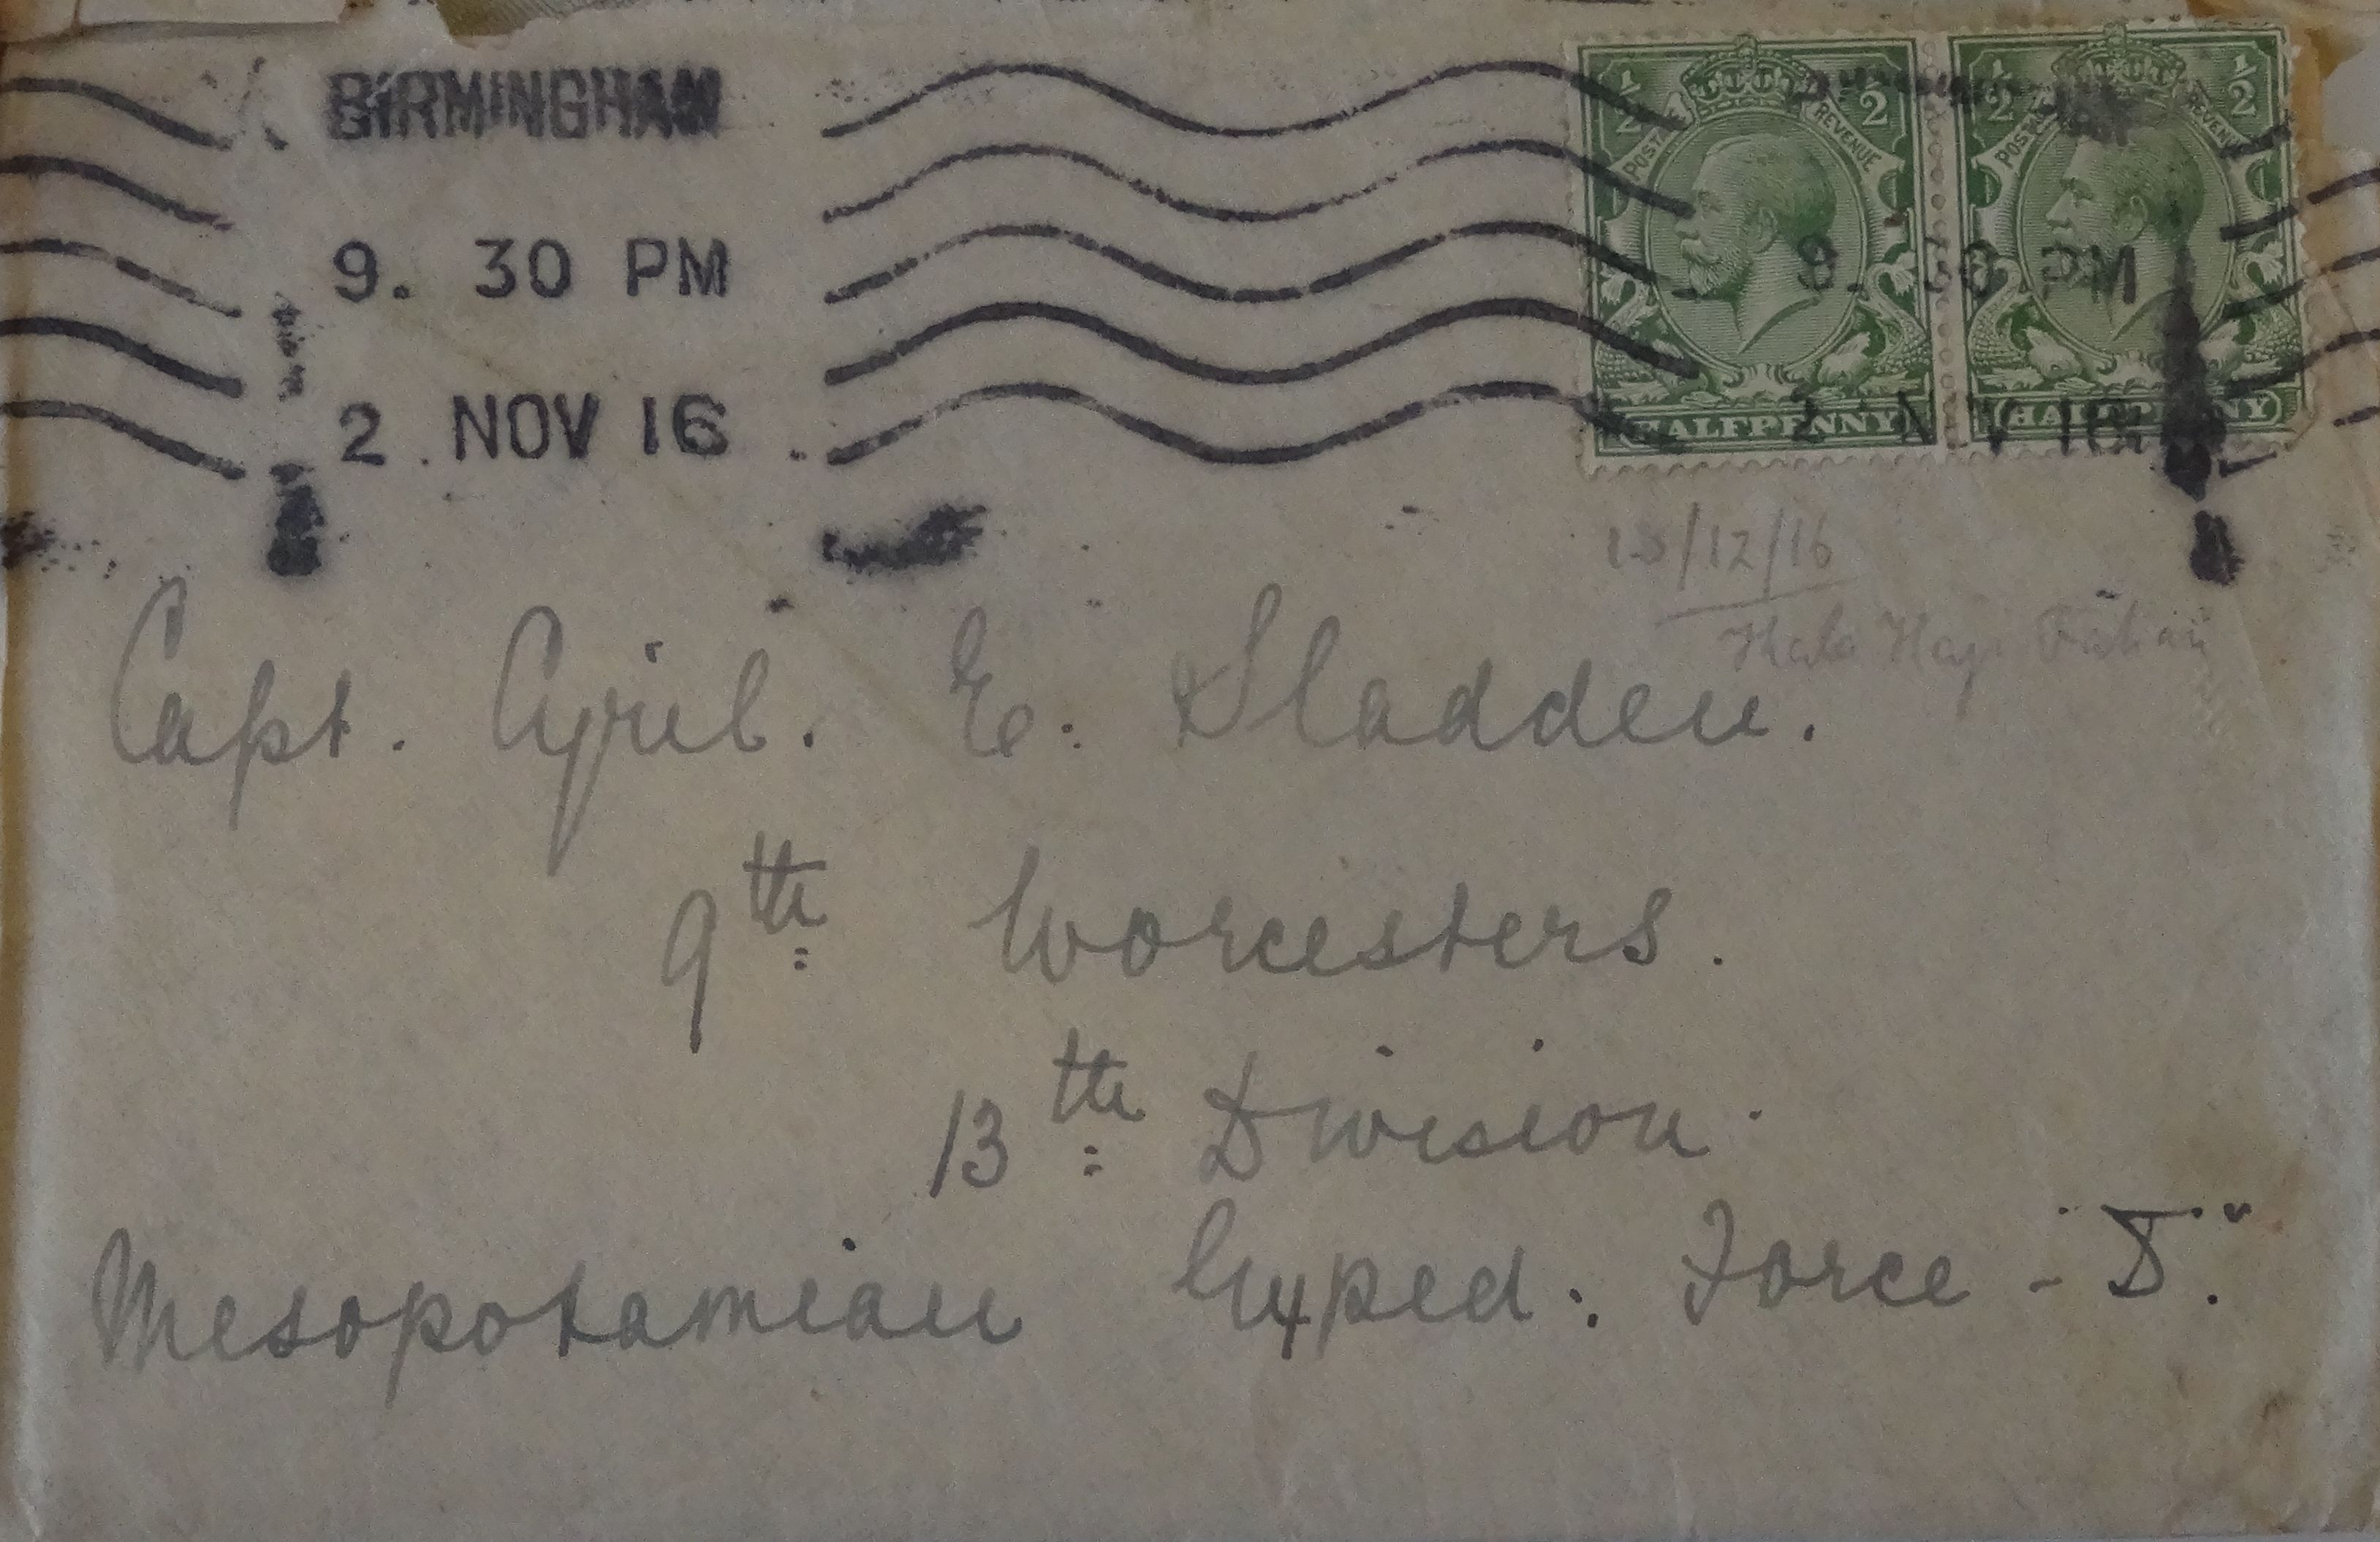 BIRMINGHAM
9. 30 PM
2. NOV 16
½ ½ ½ ½
POSTAGE REVENUE POSTAGE REVENUE
9. 30 PM
2 NOV 16
HALFPENNY HALFPENNY
/12/16
Haji
Capt. Cyril. E. Sladden.
9th Worcesters.
13th Division.
Mesopotamian Exped: Force - "D".